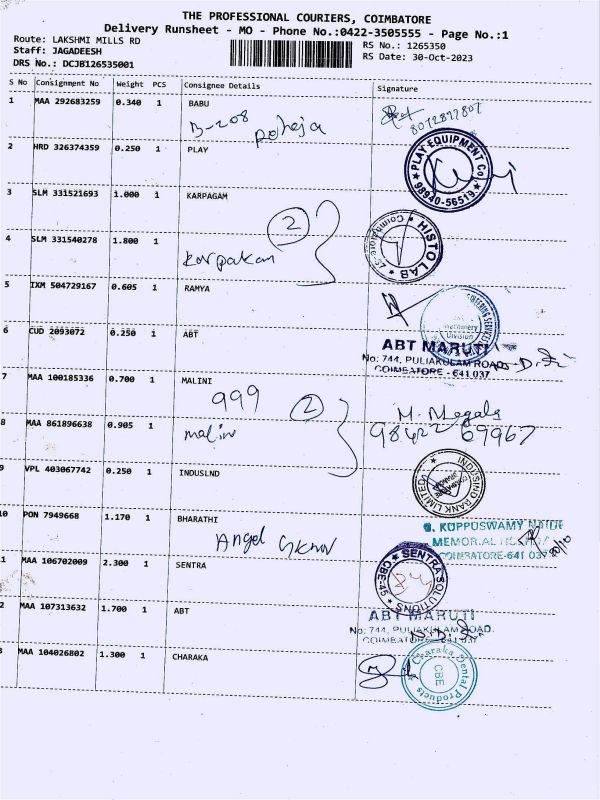 THE PROFESSIONAL COURIERS, COIMBATORE
Delivery Runsheet - MO - Phone No.:0422-3505555 - Page No.:1
Route: LAKSHMI MILLS RD
Staff: JAGADEESH
DRS No.: DCJB126535001
RS No.: 1265350
RS Date: 30-Oct-2023
S No Consignment No Weight PCS Consignee Details Signature
1 MAA 292683259 0.340 1 BABU
B-208 poheja
8072877807
2 HRD 326374359 0.250 1 PLAY
PLAY EQUIPMENT Co
98940-56519
3 SLM 331521693 1.000 1 KARPAGAM
2
HISTO LAB
Coimbatore-37
4 SLM 331540278 1.800 1
Karpakam
5 IXM 504729167 0.605 1 RAMYA
Machinery
Division
6 CUD 2093072 0.250 1 ABT
ABT MARUTI
No: 744, PULIAKULAM ROAD
COIMBATORE - 641 037
7 MAA 100185336 0.700 1 MALINI
999 2
M. Megala
8 MAA 861896638 0.905 1
malini
98422 69967
9 VPL 403067742 0.250 1 INDUSLND
INDUSIND BANK LIMITED
10 PON 7949668 1.170 1 BHARATHI
Angel
G. KUPPUSWAMY NAIDU
MEMORIAL HOSPITAL
COIMBATORE-641 037
30/10
1 MAA 106702009 2.300 1 SENTRA
SENTRA SOLUTIONS
CBE-45
2 MAA 107313632 1.700 1 ABT
ABT MARUTI
No: 744, PULIAKULAM ROAD.
COIMBATORE - 641 037
3 MAA 104026802 1.300 1 CHARAKA
Charaka Dental Products
CBE